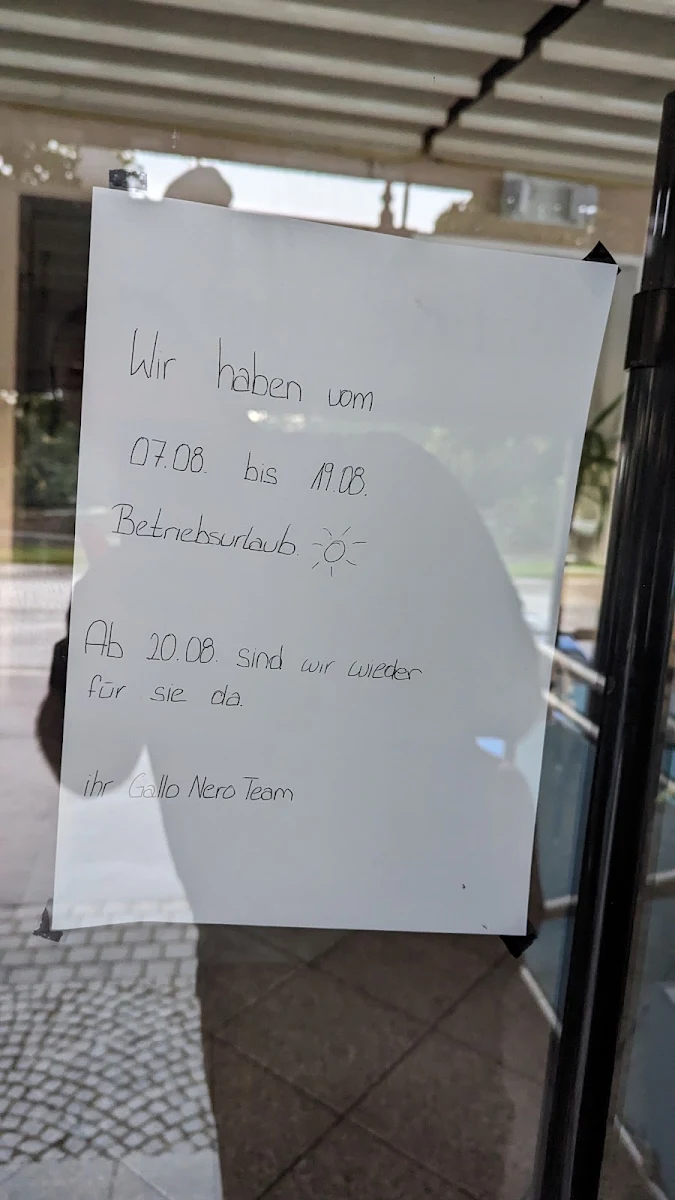 Wir haben vom
07.08. bis 19.08.
Betriebsurlaub.
Ab 20.08. sind wir wieder
für sie da.
ihr Gallo Nero Team